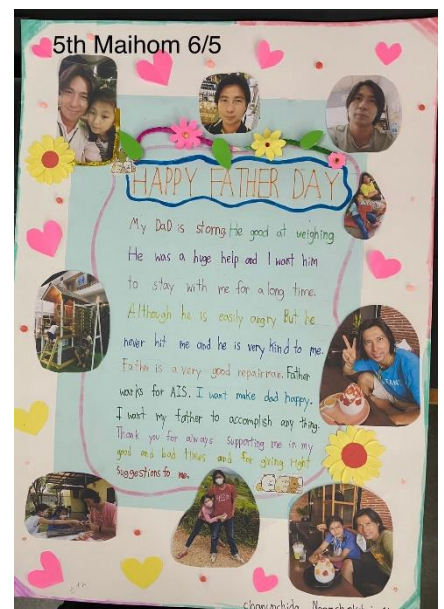 5th Maihom 6/5
HAPPY FATHER DAY
My DaD is storng. He good at weighing
He was a huge help and I want him
to stay with me for a long time.
Although he is easily angry But he
never hit me and he is very kind to me.
Father is a very good repairman. Father
works for AIS. I want make dad happy.
I want my father to accomplish any thing.
Thank you for always supporting me in my
good and bad times and for giving right
Suggestions to me.